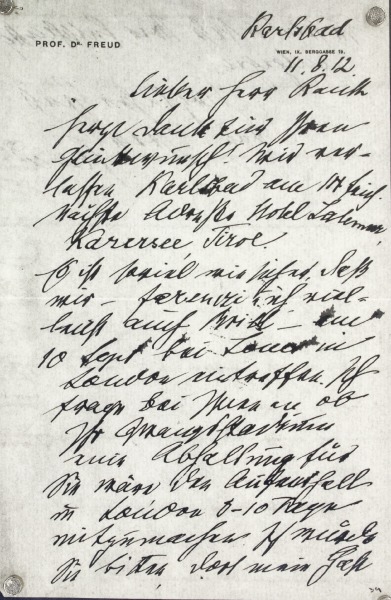 Karlsbad
PROF. DR. FREUD
WIEN, IX. BERGGASSE 19.
11.8.12
Lieber Herr Rank
Herzl Dank für Ihren
Glückwunsch! Wir ver-
lassen Karlsbad am 14 früh.
Nächste Adresse Hotel Latemar,
Karersee, Tirol.
Es ist soviel wie sicher, daß
wir – Ferenczi, ich viel-
leicht auch Brill – am
10 Sept bei Jones in
London eintreffen. Ich
frage bei Ihnen an ob
Ihr
eine Abhaltung für
Sie wäre den Aufenthalt
in London 8-10 Tage
mitzumachen. Ich würde
Sie bitten, dort mein Gast